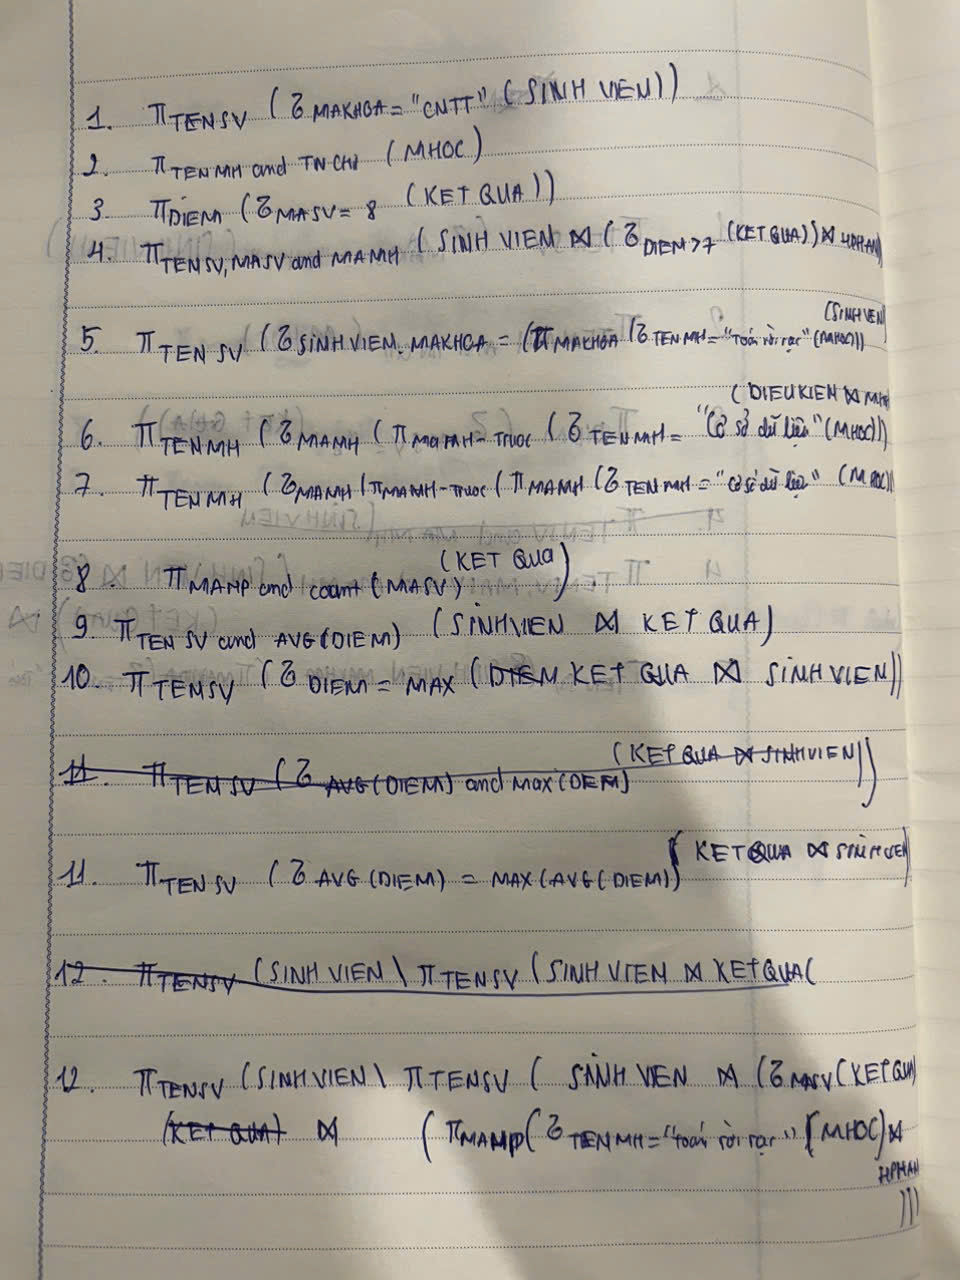 1. π TENSV ( σ MAKHOA = "CNTT" ( SINH VIEN ) )
2. π TENMH and TNCHI ( MHOC )
3 π DIEM ( σ MASV = 8 ( KET QUA ) )
4. π TENSV, MASV and MAMH ( SINH VIEN ⋈ ( σ DIEM > 7 ( KET QUA ) ) ⋈ HPHAN )
( SINH VIEN
5. π TEN SV ( σ SINH VIEN. MAKHOA = ( π MAKHOA ( σ TENMH = "Toán rời rạc" ( MHOC ) )
( DIEUKIEN ⋈ MH
6. π TENMH ( σ MAMH ( π MAMH - TRUOC ( σ TENMH = "Cơ sở dữ liệu" ( MHOC ) )
7. π TENMH ( σ MAMH ( π MAMH - Truoc ( π MAMH ( σ TENMH = "cơ sở dữ liệu" ( MHOC ) )
8. π MAHP and count ( MASV ) ( KET QUA ) .
9. π TEN SV and AVG ( DIEM ) ( SINHVIEN ⋈ KET QUA )
10. π TEMSV ( σ DIEM = MAX ( DIEM KET QUA ⋈ SINH VIEN ) )
11. π TEMSV ( σ AVG ( DIEM ) and max ( DIEM ) ( KET QUA ⋈ SINHVIEN ) )
11. π TEN SV ( σ AVG ( DIEM ) = MAX ( AVG ( DIEM ) ) ( KET QUA ⋈ SINH VIEN )
12. π TENSV ( SINH VIEN \ π TENSV ( SINH VIEN ⋈ KETQUA (
12. π TENSV ( SINH VIEN \ π TENSV ( SINH VIEN ⋈ ( σ MASV ( KETQUA )
( KET QUA ) ⋈ ( π MAHP ( σ TENMH = "Toán rời rạc" ( MHOC ) ⋈
HPHAN
) ) )